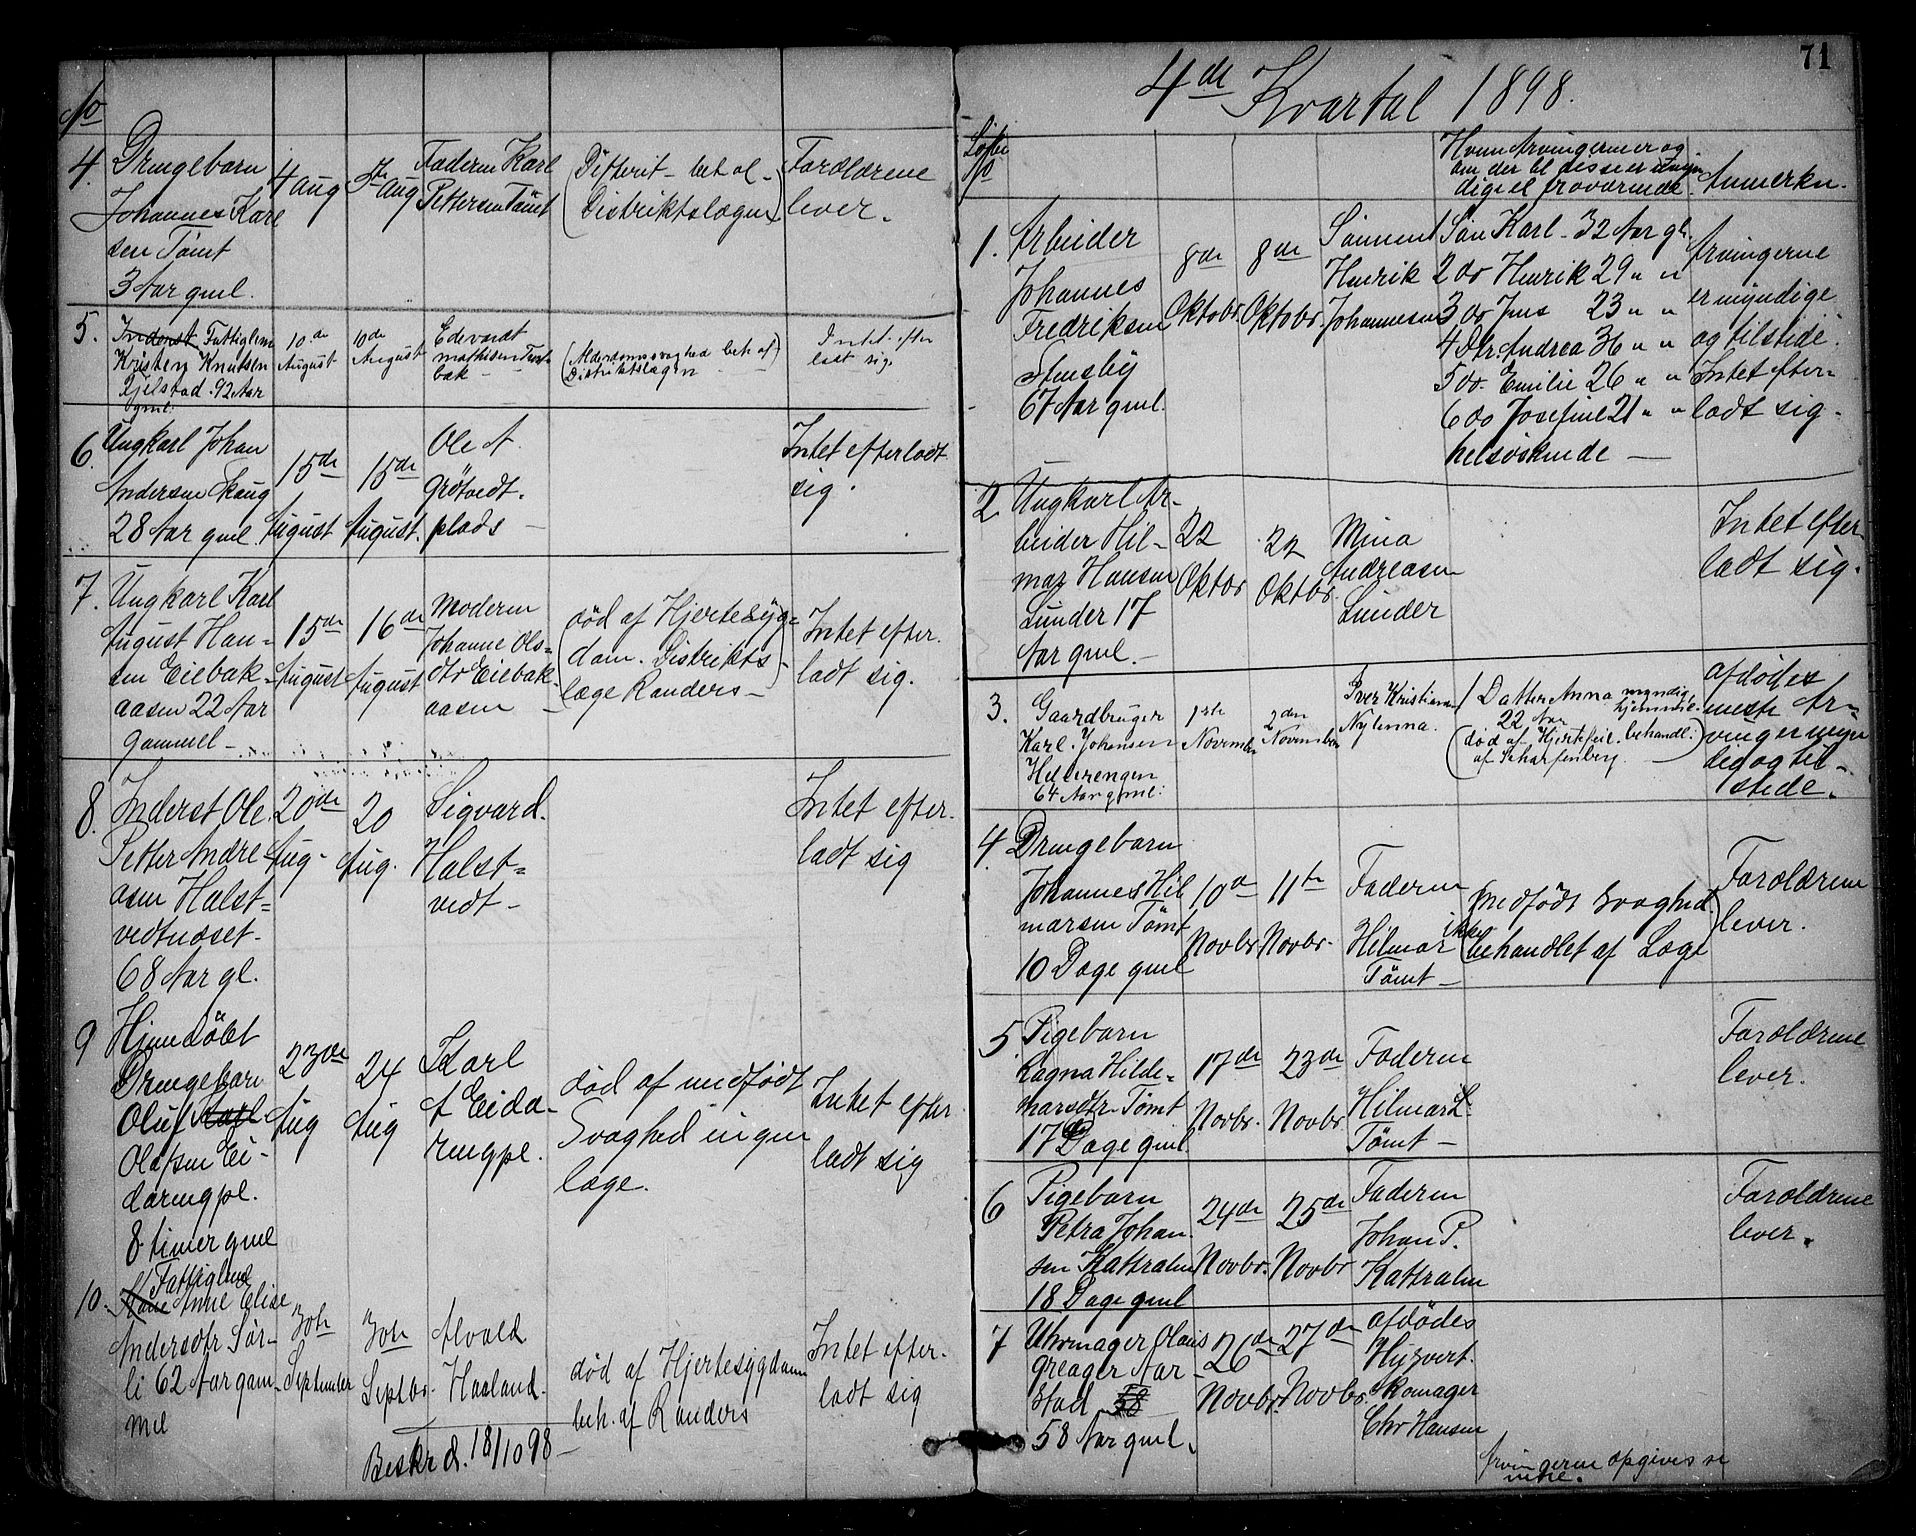 No
4. Drengebarn
Johannes Karl
sen Tømt
3 Aar gml.
4 Aug
5te Aug
Faderen Karl
Pettersen Tømt
(Difterit - beh af -
Distriktslægen)
Forældrene
lever.
5. Inderst Fattiglem
Kristen Knutsen
Gjelstad. 92 Aar
gml.
10de
August
10de
August
Edevardt
mathisen
bak -
(Alderdomssvaghed beh af)
Distriktslægen
Intet efter
ladt sig.
6. Ungkarl Johan
Andersen Skaug
28 Aar gml.
15de
August
15de
August.
Ole A.
Grötvedt.
plads -
Intet efterladt
sig.
7. Ungkarl Karl
August Han-
sen Eiebak-
aasen 22 Aar
Gammel -
15de
August
16de
August
Moderen
Johanne Ols-
dtr Eiebak-
aasen -
(død af Hjertesyg-
dom. Distrikts-
læge Randers -)
Intet efter.
ladt sig.
8. Inderst Ole
Petter Andre
asen Halst-
vedtnæset.
68 Aar gl.
20de
Aug.
20
Aug.
Sigvard.
Halst-
vedt -
Intet efter.
ladt sig
9 Hjemdöbt
Drengebarn
Oluf Karl
Olafsen Ei-
darengpl.
8 timer gml
23de
Aug
24
Aug
Karl
A Eida-
rengpl.
død af medfödt
Svaghed ingen
læge.
Intet efter
ladt sig
Fattiglem
10. Anne Elise
Andersdtr Sör-
li 62 Aar gam-
mel
30te
September
30te
Septbr.
Alvald
Haaland.
død af Hjertesygdom
beh. af Randers
Intet efter.
ladt sig
Beskr d. 18/10 98 -
71
4de Kvartal 1898.
Løbe
No
Hvem Arvingerne er og
om der bl disse er umyn
digi el fraværende
Anmerkn.
1. Arbeider
Johannes
Fredriksen
Stensby
67 Aar gml.
8de
Oktobr.
8de
Oktobr.
Sønnen
Henrik
Johannesen
1 Søn Karl - 32 Aar gl.
2 do Henrik 29 " "
3 do Jens 23 " "
4 Dtr. Andrea 36 " "
5 do. Emilie 26 " "
6 do Josefine 21 " "
helsöskende -
Arvingerne
er myndige
og tilstede.
Intet efter-
ladt sig.
2 Ungkarl Ar-
beider Hil-
mar Hansen
Lunder 17
Aar gml. -
22
Oktbr
22
Oktbr.
Mina
Andreasen
Lunder
Intet efter-
ladt sig.
3. Gaardbruger
Karl. Johansen
Hellerengen
64 Aar gml:
1ste
November
2den
November
Iver Kristiansen
Nylenna.
1 Datter Anna myndig
22 Aar hjemme.
(død af Hjertefeil. behandl:)
af Scharfenberg. -
afdødes
neste Ar-
vinger myn
dig og til-
stede.
4. Drengebarn
Johannes Hil
marsen Tömt
10 Dage gml
10de
Novbr.
11te
Novbr.
Faderen
Hilmar
Tömt -
(medfödt Svaghed)
ikke
behandlet af Læge
Forældrene
lever.
5. Pigebarn
Ragna Hilde-
marsdtr. Tömt
17 Dage gml.
17de
Novbr.
23de
Novbr
Faderen
Hilmar L.
Tömt -
Forældrene
lever.
6 Pigebarn
Petra Johan
sen Kattralen
18 Dage gml
24de
Novbr.
25de
Novbr
Faderen
Johan P.
Kattralen
Forældrene
lever.
7 Uhrmager Olaus
Greager Aar-
stad 58
58 Aar gml.
26de
Novbr.
27de
Novbr.
afdödes
Husvert.
skomager
Chr Hansen
Arvingerne opgives se